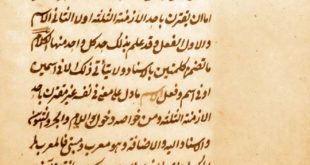 اما ان يقترن باحد الازمنة الثلثة او لا الثاني الا
والاول الفعل وقد علم بذلك حد كل واحد منها الكلام
ما تضمن كلمتين بالاسناد ولا يتأتى ذلك الا في اسمين
او في اسم وفعل الاسم ما دل على معنى في نفسه غير مقترن باحد
الازمنة الثلثة ومن خواصه دخول اللام والجر والتنوين
والاسناد اليه والاضافة وهو معرب ومبني فالمعرب